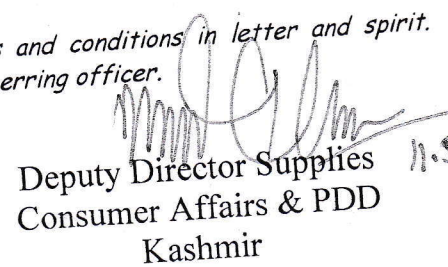 and conditions in letter and spirit.
erring officer.
Deputy Director Supplies
Consumer Affairs & PDD
Kashmir